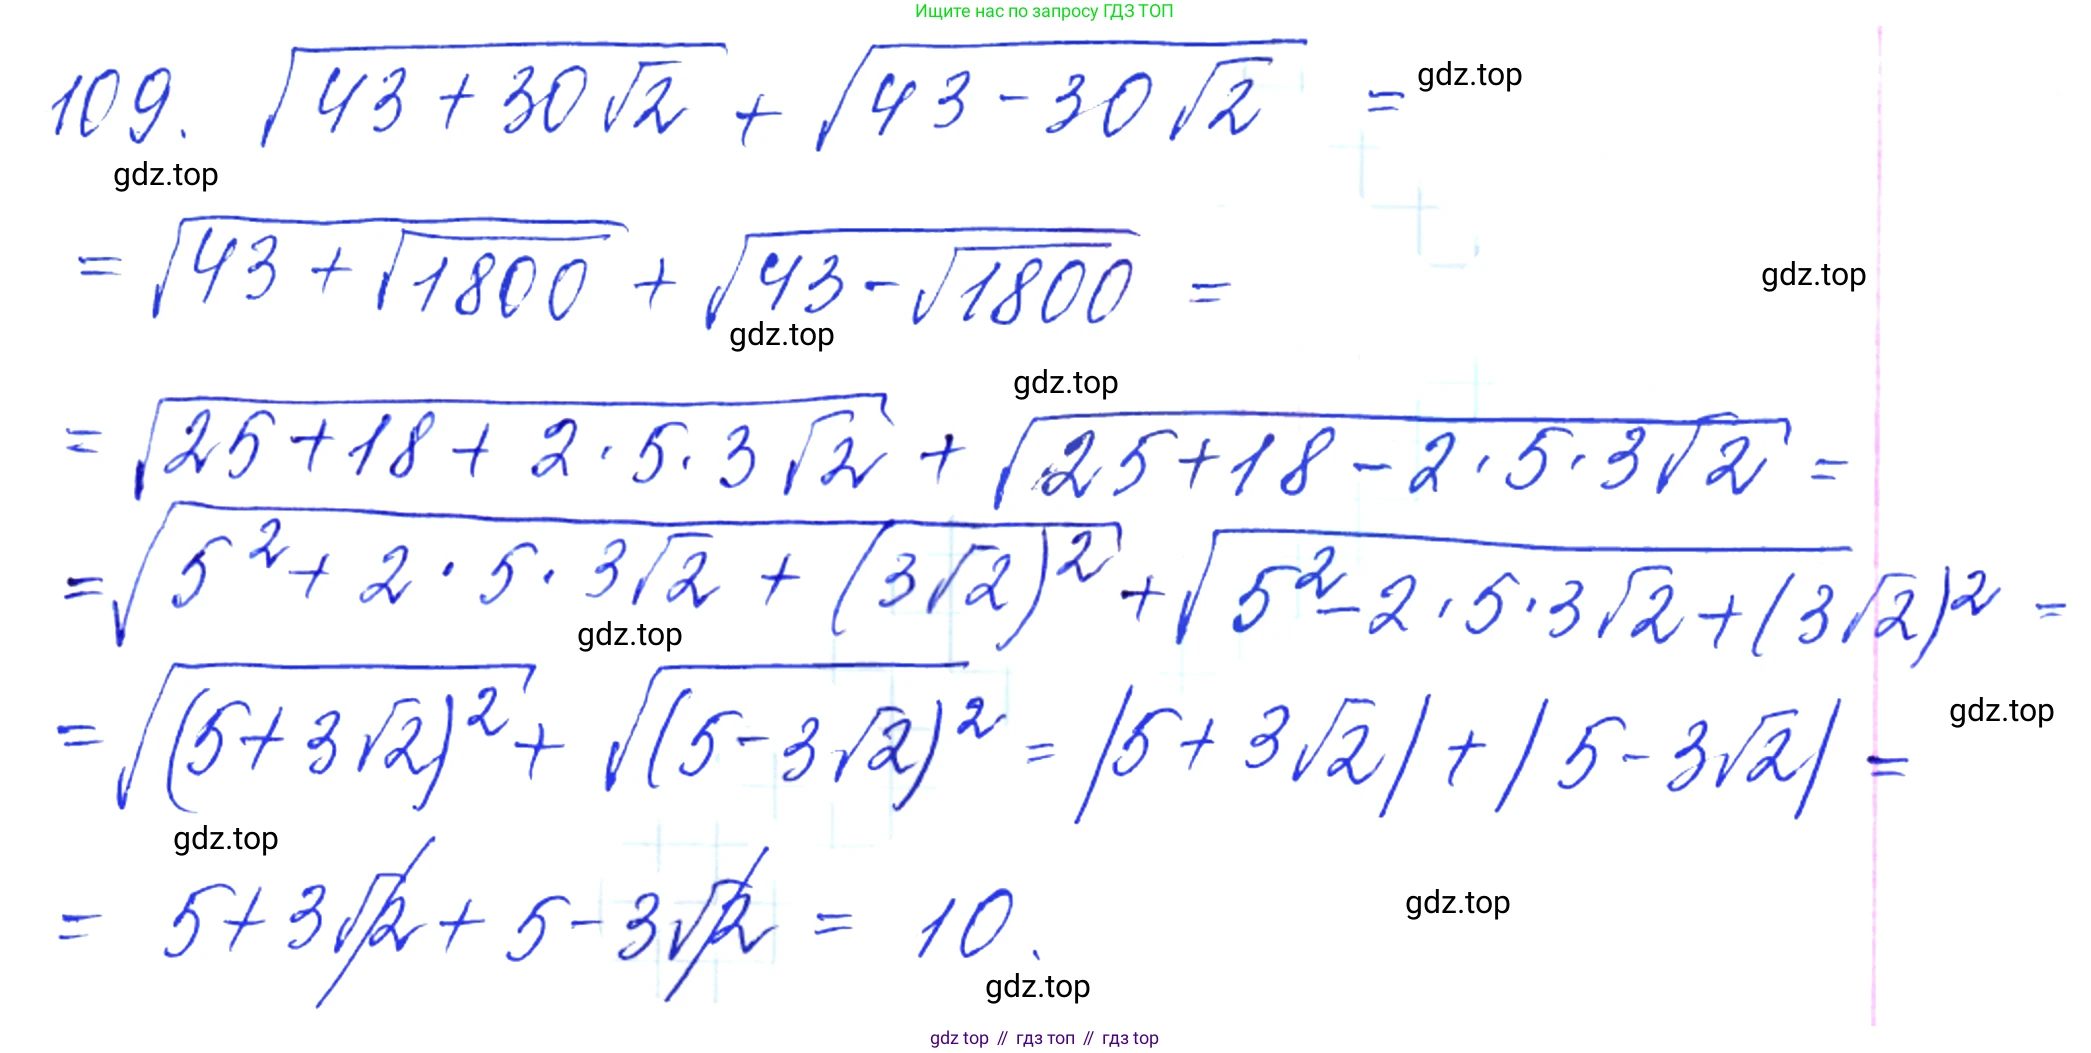 Ищите нас по запросу ГДЗ ТОП
109. √(43 + 30√2) + √(43 - 30√2) =
gdz.top
gdz.top
= √(43 + √1800) + √(43 - √1800) =
gdz.top
gdz.top
gdz.top
= √(25 + 18 + 2 · 5 · 3√2) + √(25 + 18 - 2 · 5 · 3√2) =
= √(5² + 2 · 5 · 3√2 + (3√2)²) + √(5² - 2 · 5 · 3√2 + (3√2)²) =
gdz.top
= √(5 + 3√2)² + √(5 - 3√2)² = |5 + 3√2| + |5 - 3√2| =
gdz.top
gdz.top
= 5 + 3√2 + 5 - 3√2 = 10.
gdz.top
gdz.top
gdz top // гдз топ // гдз top